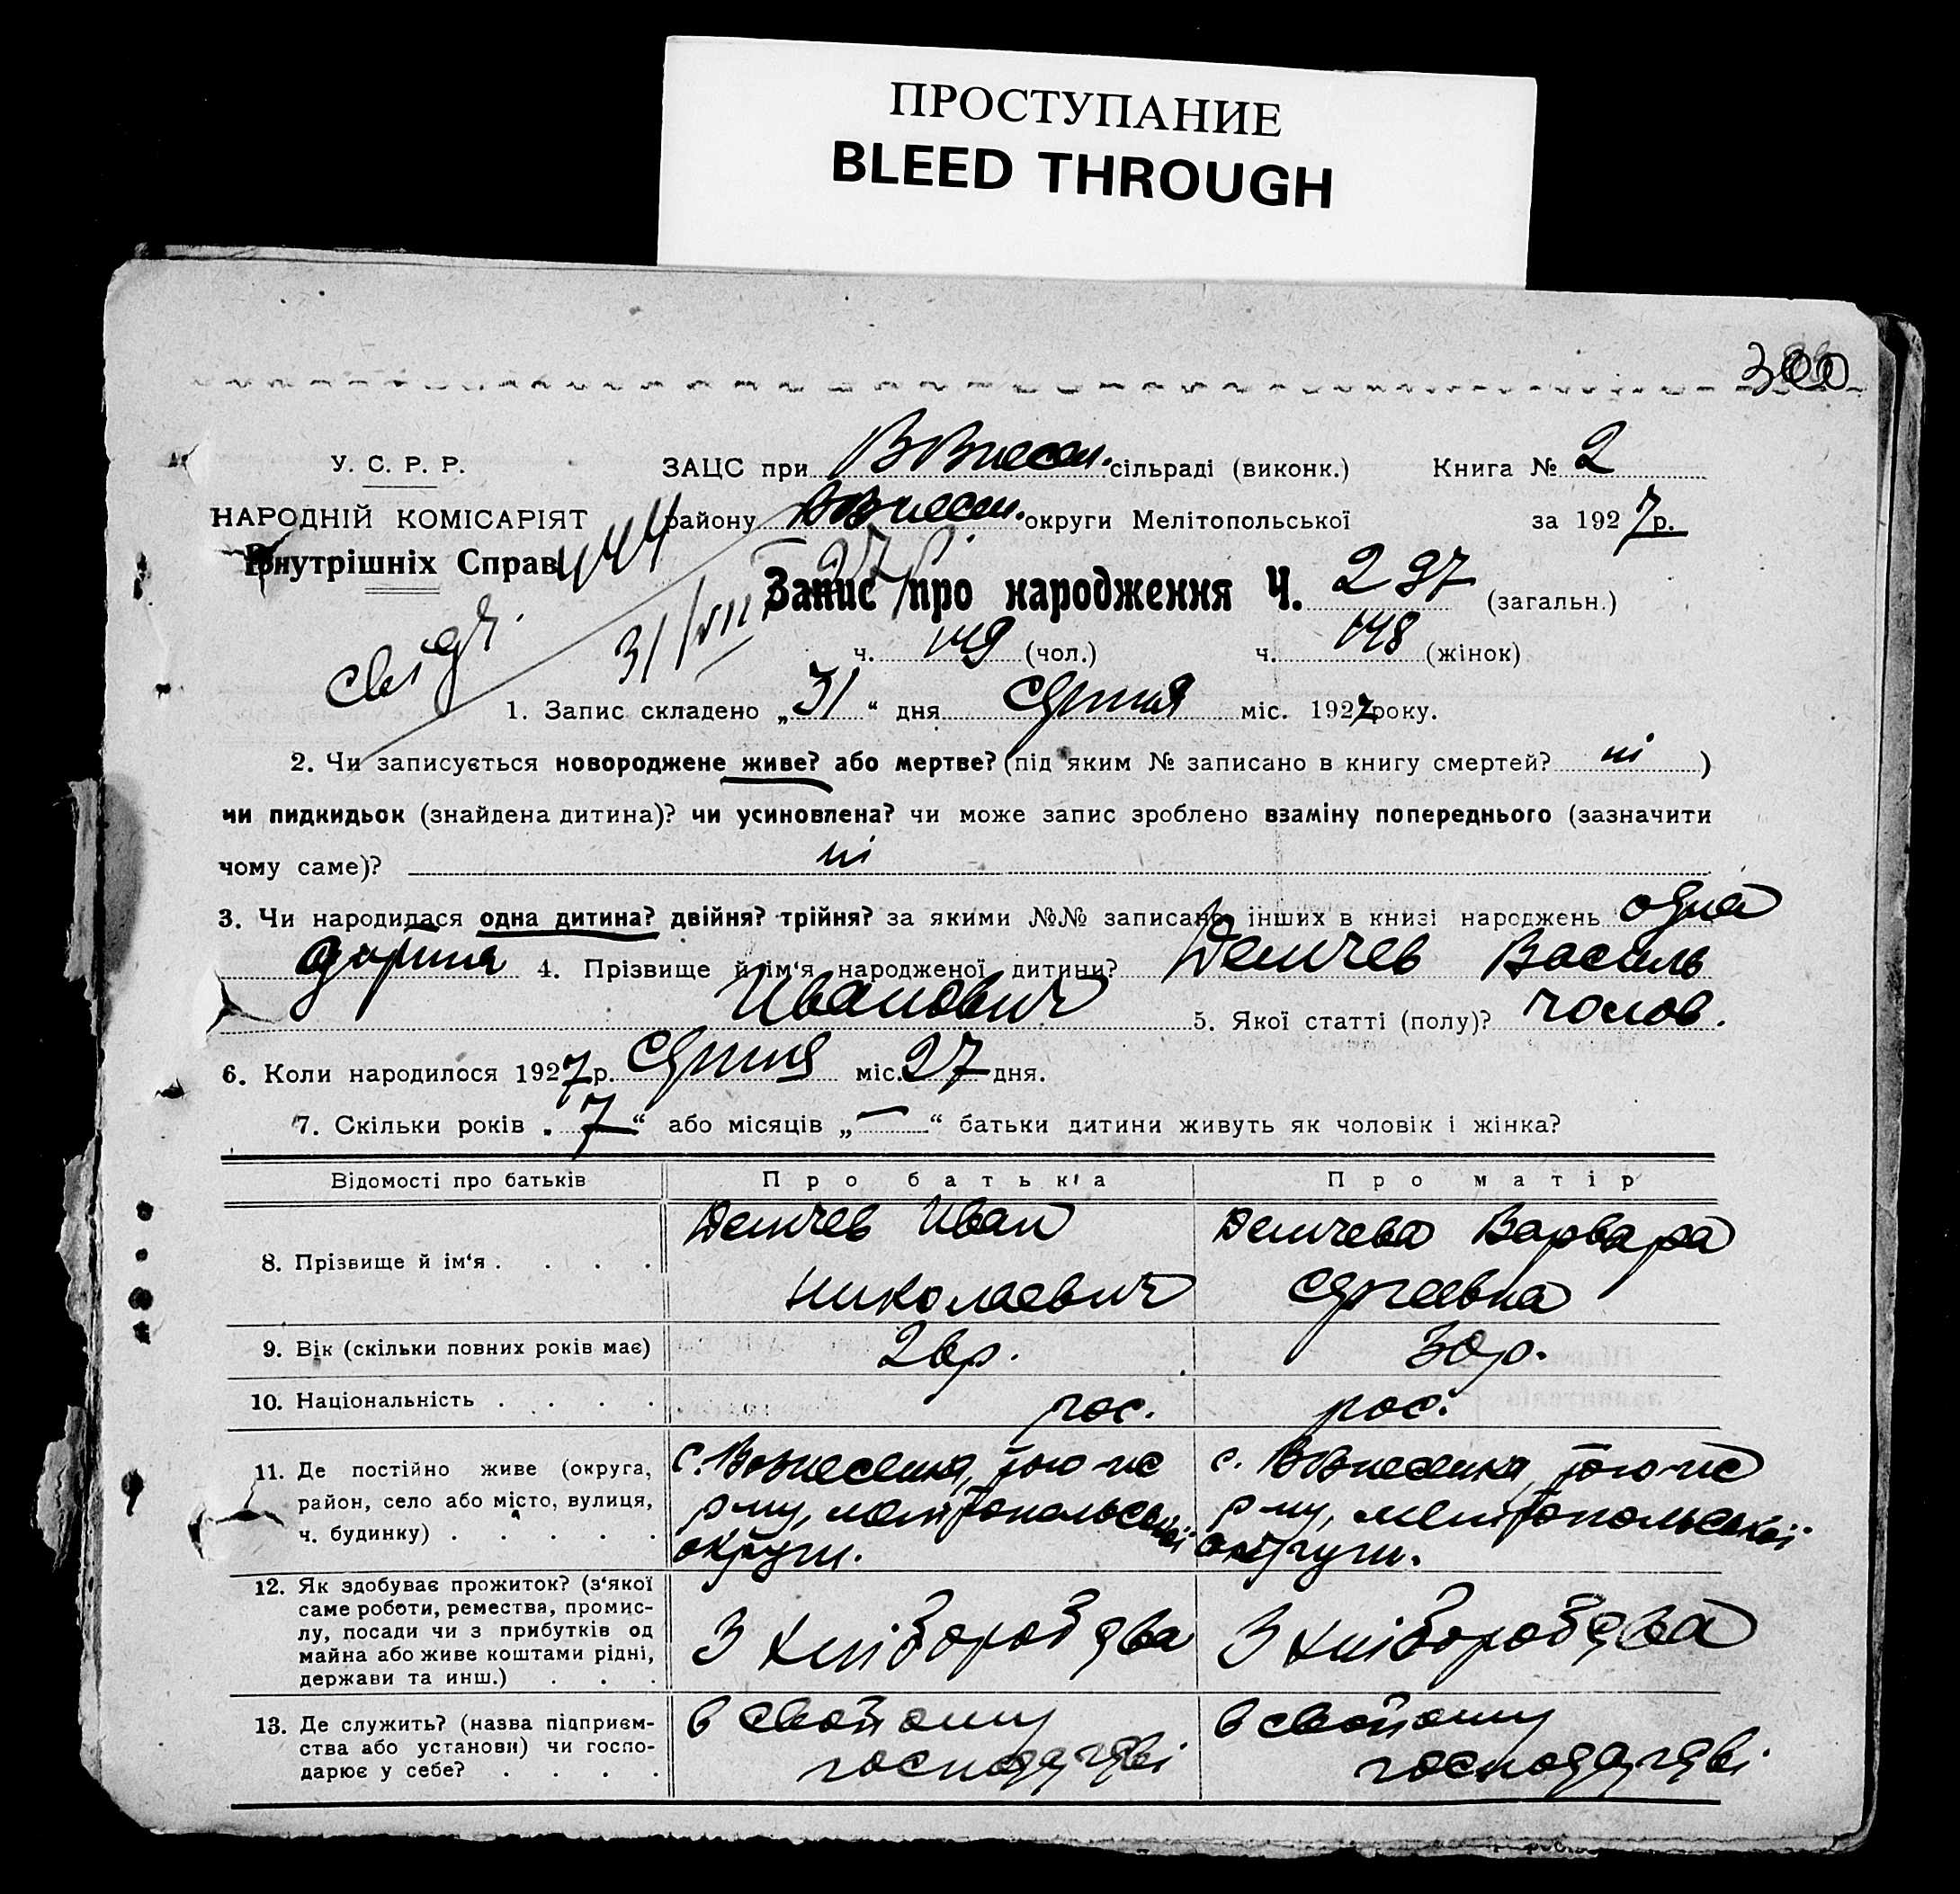 ПРОСТУПАНИЕ
BLEED THROUGH
300
У. С. Р. Р.
ЗАЦС при Вознесен. сільраді (виконк.) Книга № 2
НАРОДНІЙ КОМІСАРІЯТ
району Вознесен. округи Мелітопольської за 1927 р.
Внутрішніх Справ
444
31/VIII 27 р.
Запис про народження Ч. 297 (загальн.)
ч. 149 (чол.) ч. 148 (жінок)
1. Запис складено „31“ дня Серпня міс. 1927 року.
2. Чи записується новороджене живе? або мертве? (під яким № записано в книгу смертей? ні )
чи пидкидьок (знайдена дитина)? чи усиновлена? чи може запис зроблено взаміну попереднього (зазначити
чому саме)? ні
3. Чи народилася одна дитина? двійня? трійня? за якими №№ записано інших в книзі народжень одна
дитина 4. Прізвище й ім‘я народженої дитини? Демчев Василь
Иванович 5. Якої статті (полу)? чолов.
6. Коли народилося 1927 р. Серпня міс. 27 дня.
7. Скільки років „7“ або місяців „—“ батьки дитини живуть як чоловік і жінка?
Відомості про батьків Про батька Про матір
8. Прізвище й ім‘я . . . . Демчев Иван Николаевич Демчева Варвара Сергеевна
9. Вік (скільки повних років має) 26 р. 30 р.
10. Національність . . . . рос. рос.
11. Де постійно живе (округа,
район, село або місто, вулиця,
ч. будинку) . . . . .
с. Вознесенка, того-ж
р-ну, мелітопольської
округи.
с. Вознесенка, того-ж
р-ну, мелітопольської
округи.
12. Як здобуває прожиток? (з‘якої
саме роботи, ремества, промис-
лу, посади чи з прибутків од
майна або живе коштами рідні,
держави та инш.) . . .
З хліборобства З хліборобства
13. Де служить? (назва підприєм-
ства або установи) чи госпо-
дарює у себе? . . . .
в свойому
господарстві
в свойому
господарстві